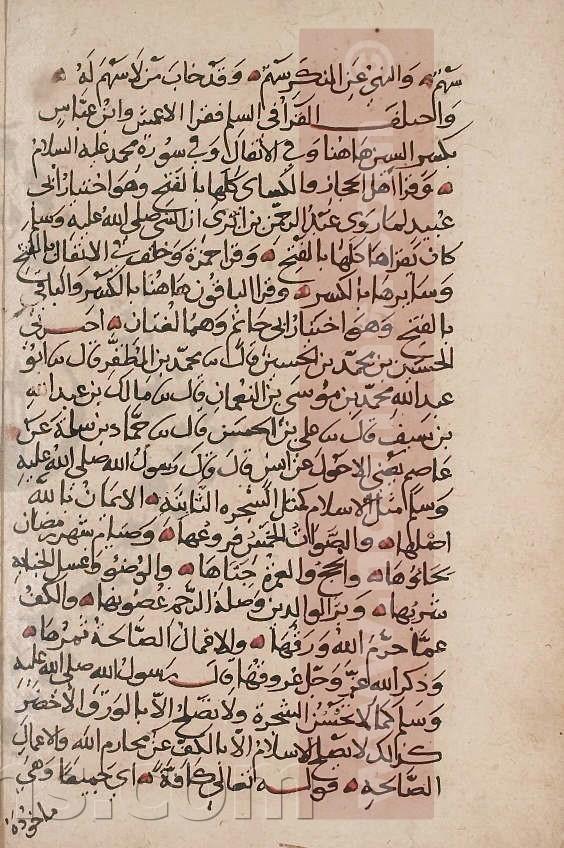 سهم والنهى عن المنكر سهم وقد خاب من لا سهم له
واختلف القرا فى السلم فقرا الاعمش وابن عباس
بكسر السين هاهنا وفى الانفال وفى سورة محمد عليه السلام
وقرا اهل الحجاز والكساى كلها بالفتح وهو اختيار ابى
عبيد لما روى عبد الرحمن بن ابزى ان النبى صلى الله عليه وسلم
كان يقراها كلها بالفتح وقرا حمزة وخلف فى الانفال بالفتح
وسايرها بالكسر وقرا الباقون هاهنا بالكسر والباقى
بالفتح وهو اختيار ابى حاتم وهما لغتان اخبرنى
الحسين بن محمد بن الحسين قال محمد بن المظفر قال ابو
عبدالله محمد بن موسى بن النعمان قال مالك بن عبدالله
بن سيف قال على بن الحسن قال حماد بن سلمة عن
عاصم يعنى الاحول عن انس قال قال رسول الله صلى الله عليه
وسلم مثل الاسلام كمثل الشجره الثابته الايمان بالله
اصلها والصلوات الخمس فروعها وصيام شهر رمضان
لحاوها والحج والعمرة جناها والوضو وغسل الجنابه
شربها وبر الوالدين وصلة الرحم غصونها والكف
عما حرم الله ورقها والاعمال الصالحة ثمرها
وذكر الله عز وجل عروقها قال رسول الله صلى الله عليه
وسلم كما لا تحسن الشجرة ولا تصلح الا بالورق الاخضر
كذلك لا يصلح الاسلام الا بالكف عن محارم الله والاعمال
الصالحه قوله تعالى كافة اى جميعا وهى
ماخوذه
ns.com